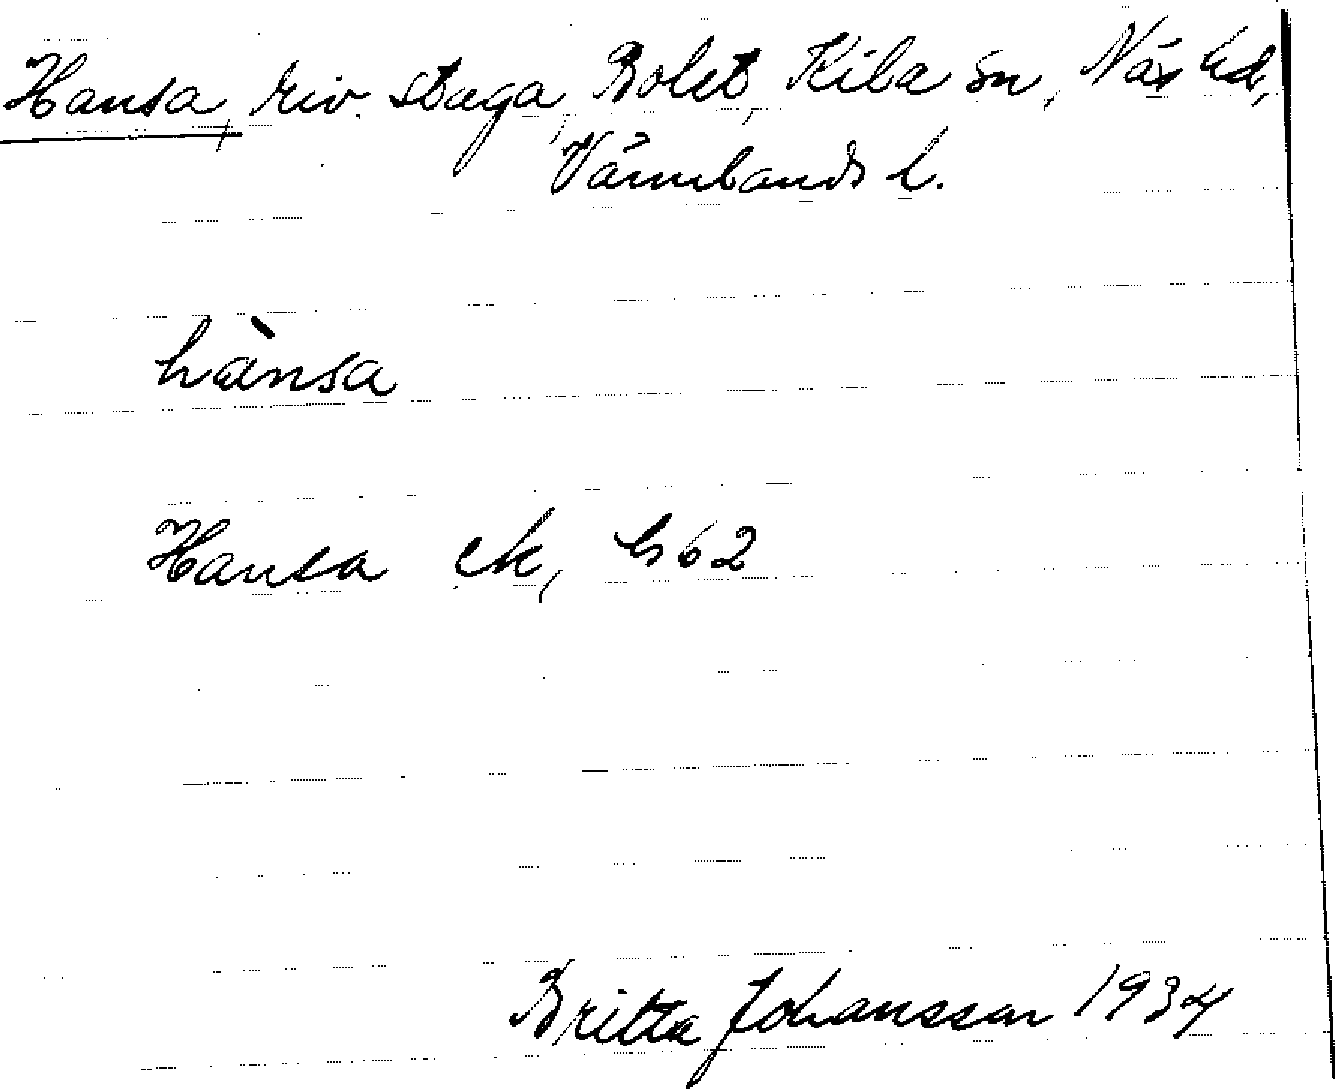 Hansa, riv. stuga, Bolet, Kila sn, Näs hd,
Värmlands l.
hànsa
Hansa ek, b 62
Britta Johansson 1934